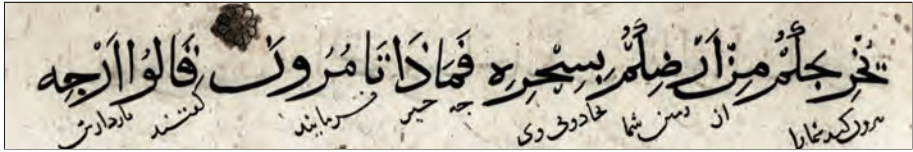 يُخْرِجَكُمْ مِنْ اَرْضِكُمْ بِسِحْرِهِ فَمَاذَا تَامُرُونَ قَالُوا اَرْجِه
بیرون کند شمارا از زمین شما بجادوئی وی چه چیز فرمایند گفتند بازدارش